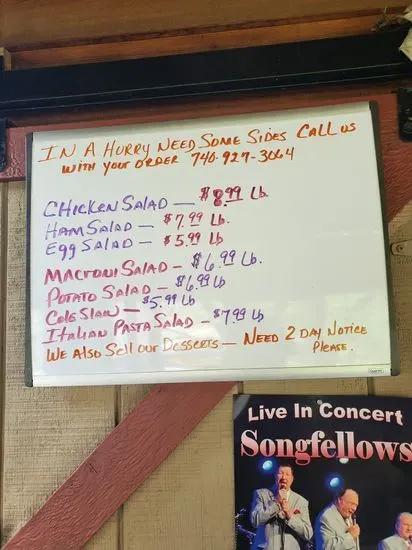 IN A HURRY NEED SOME SIDES CALL US
WITH YOUR ORDER 740-927-3064
CHICKEN SALAD — $8.99 Lb.
HAM SALAD — $7.99 Lb.
EGG SALAD — $5.99 Lb
MACRONI SALAD — $6.99 Lb.
POTATO SALAD — $6.99 Lb
COLE SLAW — $5.99 Lb
ITALIAN PASTA SALAD — $7.99 Lb
WE ALSO SELL OUR DESSERTS — NEED 2 DAY NOTICE
PLEASE.
Live In Concert
Songfellows